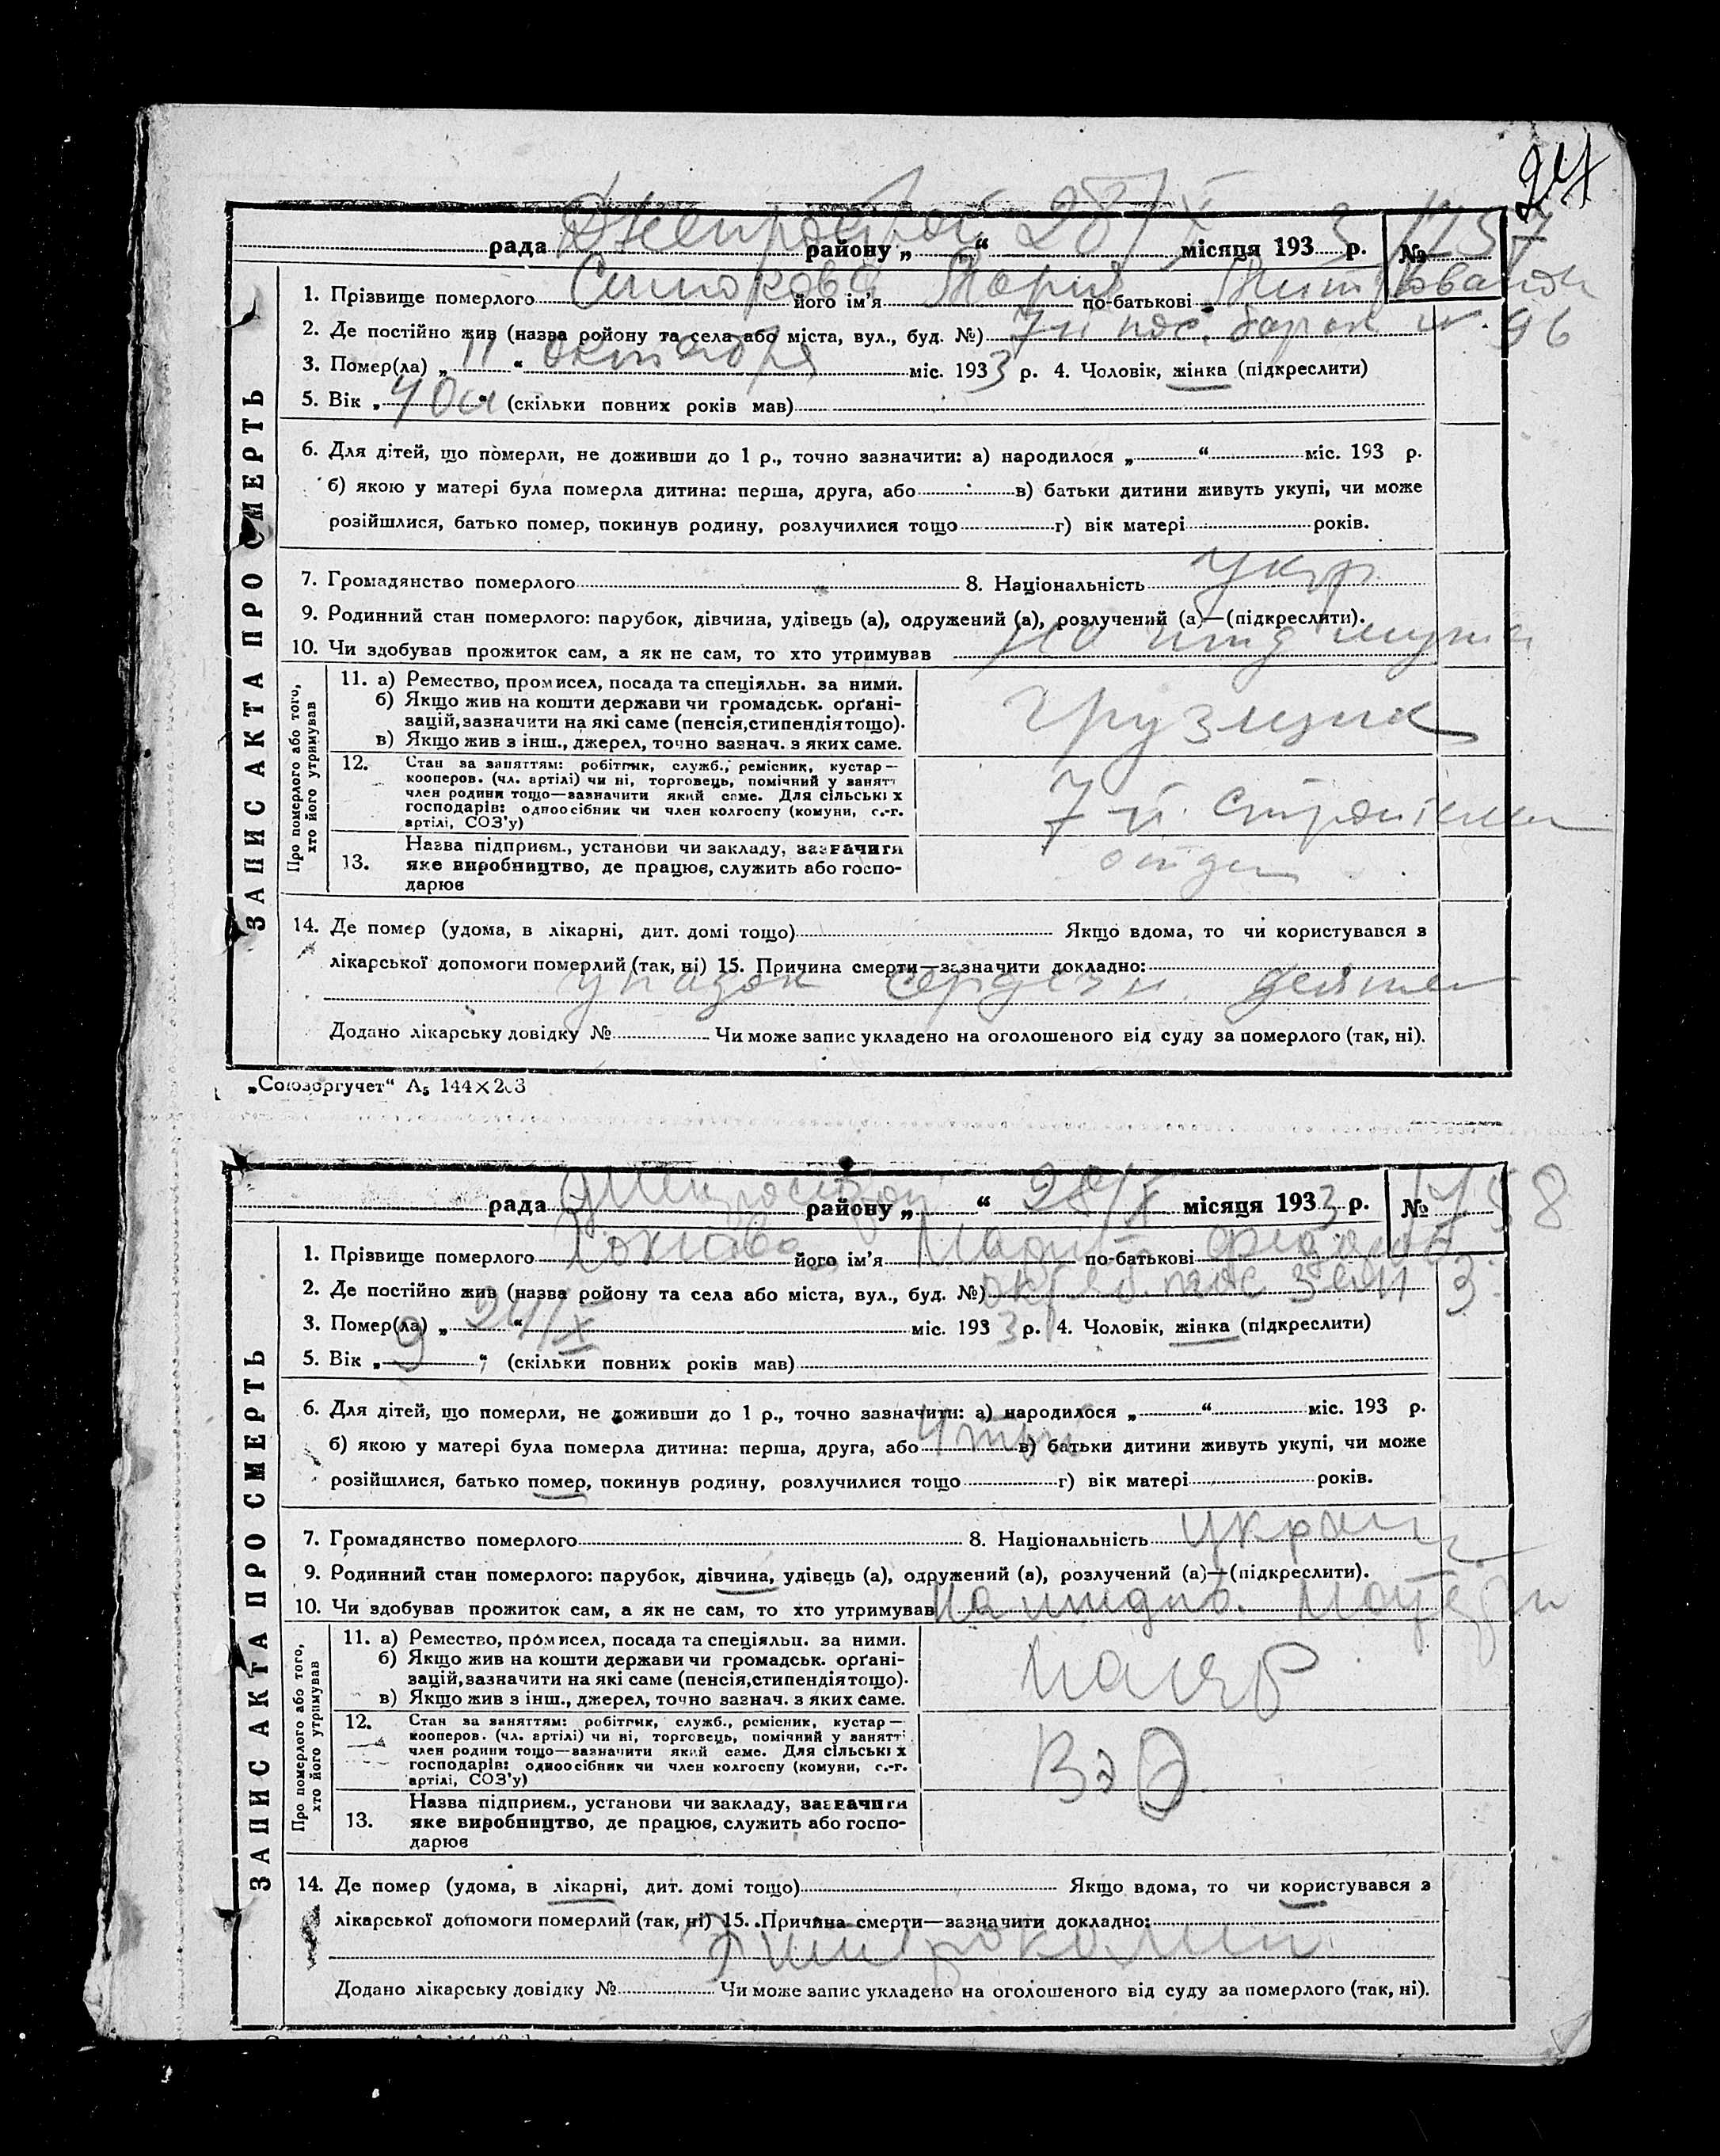 рада Днепрострой району „ “ 28/X місяця 1933 р. № 1157
1. Прізвище померлого його ім’я Мария по-батькові
2. Де постійно жив (назва ройону та села або міста, вул., буд. №) 7й пос. барак № 96
3. Помер(ла) „ 11 “ октября міс. 1933 р. 4. Чоловік, жінка (підкреслити)
5. Вік „ 40 “ (скільки повних років мав)
6. Для дітей, що померли, не доживши до 1 р., точно зазначити: а) народилося „ “ міс. 193 р.
б) якою у матері була померла дитина: перша, друга, або в) батьки дитини живуть укупі, чи може
розійшлися, батько помер, покинув родину, розлучилися тощо г) вік матері років.
7. Громадянство померлого 8. Національність укр
9. Родинний стан померлого: парубок, дівчина, удівець (а), одружений (а), розлучений (а)—(підкреслити).
10. Чи здобував прожиток сам, а як не сам, то хто утримував на ижд мужа
ЗАПИС АКТА ПРО СМЕРТЬ
Про померлого або того, хто його утримував
11. а) Ремество, промисел, посада та спеціяльн. за ними.
б) Якщо жив на кошти держави чи громадськ. орґані-
зацій, зазначити на які саме (пенсія, стипендія тощо).
в) Якщо жив з інш., джерел, точно зазнач. з яких саме.
грузчик
12. Стан за заняттям: робітник, служб., ремісник, кустар—
кооперов. (чл. артілі) чи ні, торговець, помічний у занятт
член родини тощо—зазначити який саме. Для сільських
господарів: одноосібник чи член колгоспу (комуни, с.-г.
артілі, СОЗ’у)
7-й
13. Назва підприєм., установи чи закладу, зазначити
яке виробництво, де працює, служить або госпо-
дарює
отдел
14. Де помер (удома, в лікарні, дит. домі тощо) Якщо вдома, то чи користувався з
лікарської допомоги померлий (так, ні) 15. Причина смерти—зазначити докладно:
упадок сердечн. деятел
Додано лікарську довідку № Чи може запис укладено на оголошеного від суду за померлого (так, ні).
„Союзоргучет“ А5 144×203
рада Днепрострой району „ “ 28/X місяця 1933 р. № 1158
1. Прізвище померлого його ім’я Мария по-батькові
2. Де постійно жив (назва ройону та села або міста, вул., буд. №) пос 3
3. Помер(ла) „ 24/X “ міс. 1933 р. 4. Чоловік, жінка (підкреслити)
5. Вік „ 9 “ (скільки повних років мав)
6. Для дітей, що померли, не доживши до 1 р., точно зазначити: а) народилося „ “ міс. 193 р.
б) якою у матері була померла дитина: перша, друга, або в) батьки дитини живуть укупі, чи може
розійшлися, батько помер, покинув родину, розлучилися тощо г) вік матері років.
7. Громадянство померлого 8. Національність украин
9. Родинний стан померлого: парубок, дівчина, удівець (а), одружений (а), розлучений (а)—(підкреслити).
10. Чи здобував прожиток сам, а як не сам, то хто утримував на иждив. матери
ЗАПИС АКТА ПРО СМЕРТЬ
Про померлого або того, хто його утримував
11. а) Ремество, промисел, посада та спеціяльн. за ними.
б) Якщо жив на кошти держави чи громадськ. орґані-
зацій, зазначити на які саме (пенсія, стипендія тощо).
в) Якщо жив з інш., джерел, точно зазнач. з яких саме.
маляр
12. Стан за заняттям: робітник, служб., ремісник, кустар—
кооперов. (чл. артілі) чи ні, торговець, помічний у занятт
член родини тощо—зазначити який саме. Для сільських
господарів: одноосібник чи член колгоспу (комуни, с.-г.
артілі, СОЗ’у)
13. Назва підприєм., установи чи закладу, зазначити
яке виробництво, де працює, служить або госпо-
дарює
14. Де помер (удома, в лікарні, дит. домі тощо) Якщо вдома, то чи користувався з
лікарської допомоги померлий (так, ні) 15. Причина смерти—зазначити докладно:
Додано лікарську довідку № Чи може запис укладено на оголошеного від суду за померлого (так, ні).